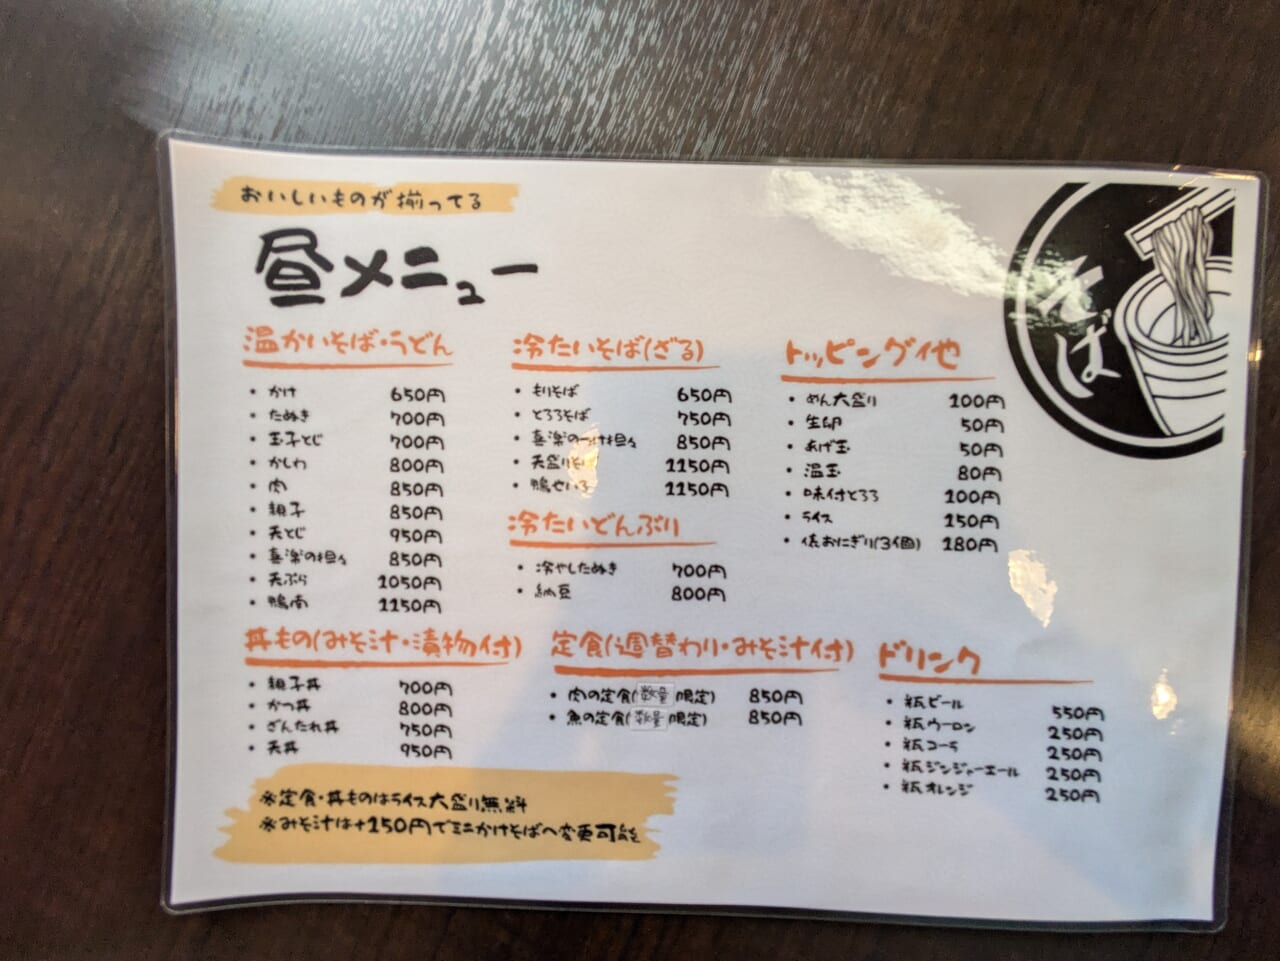 おいしいものが揃ってる
昼メニュー
そば
温かいそば・うどん
・かけ 650円
・たぬき 700円
・玉子とじ 700円
・かしわ 800円
・肉 850円
・親子 850円
・天とじ 950円
・喜楽の担々 850円
・天ぷら 1050円
・鴨南 1150円
冷たいそば(ざる)
・もりそば 650円
・とろろそば 750円
・喜楽のつけ担々 850円
・天盛りそば 1150円
・鴨せいろ 1150円
冷たいどんぶり
・冷やしたぬき 700円
・納豆 800円
トッピング他
・めん大盛り 100円
・生卵 50円
・あげ玉 50円
・温玉 80円
・味付とろろ 100円
・ライス 150円
・俵おにぎり(3個) 180円
丼もの(みそ汁・漬物付)
・親子丼 700円
・かつ丼 800円
・ざんたれ丼 750円
・天丼 950円
定食(週替わり・みそ汁付)
・肉の定食(数量限定) 850円
・魚の定食(数量限定) 850円
ドリンク
・瓶ビール 550円
・瓶ウーロン 250円
・瓶コーラ 250円
・瓶ジンジャーエール 250円
・瓶オレンジ 250円
※定食・丼ものはライス大盛り無料
※みそ汁は+150円でミニかけそばへ変更可能